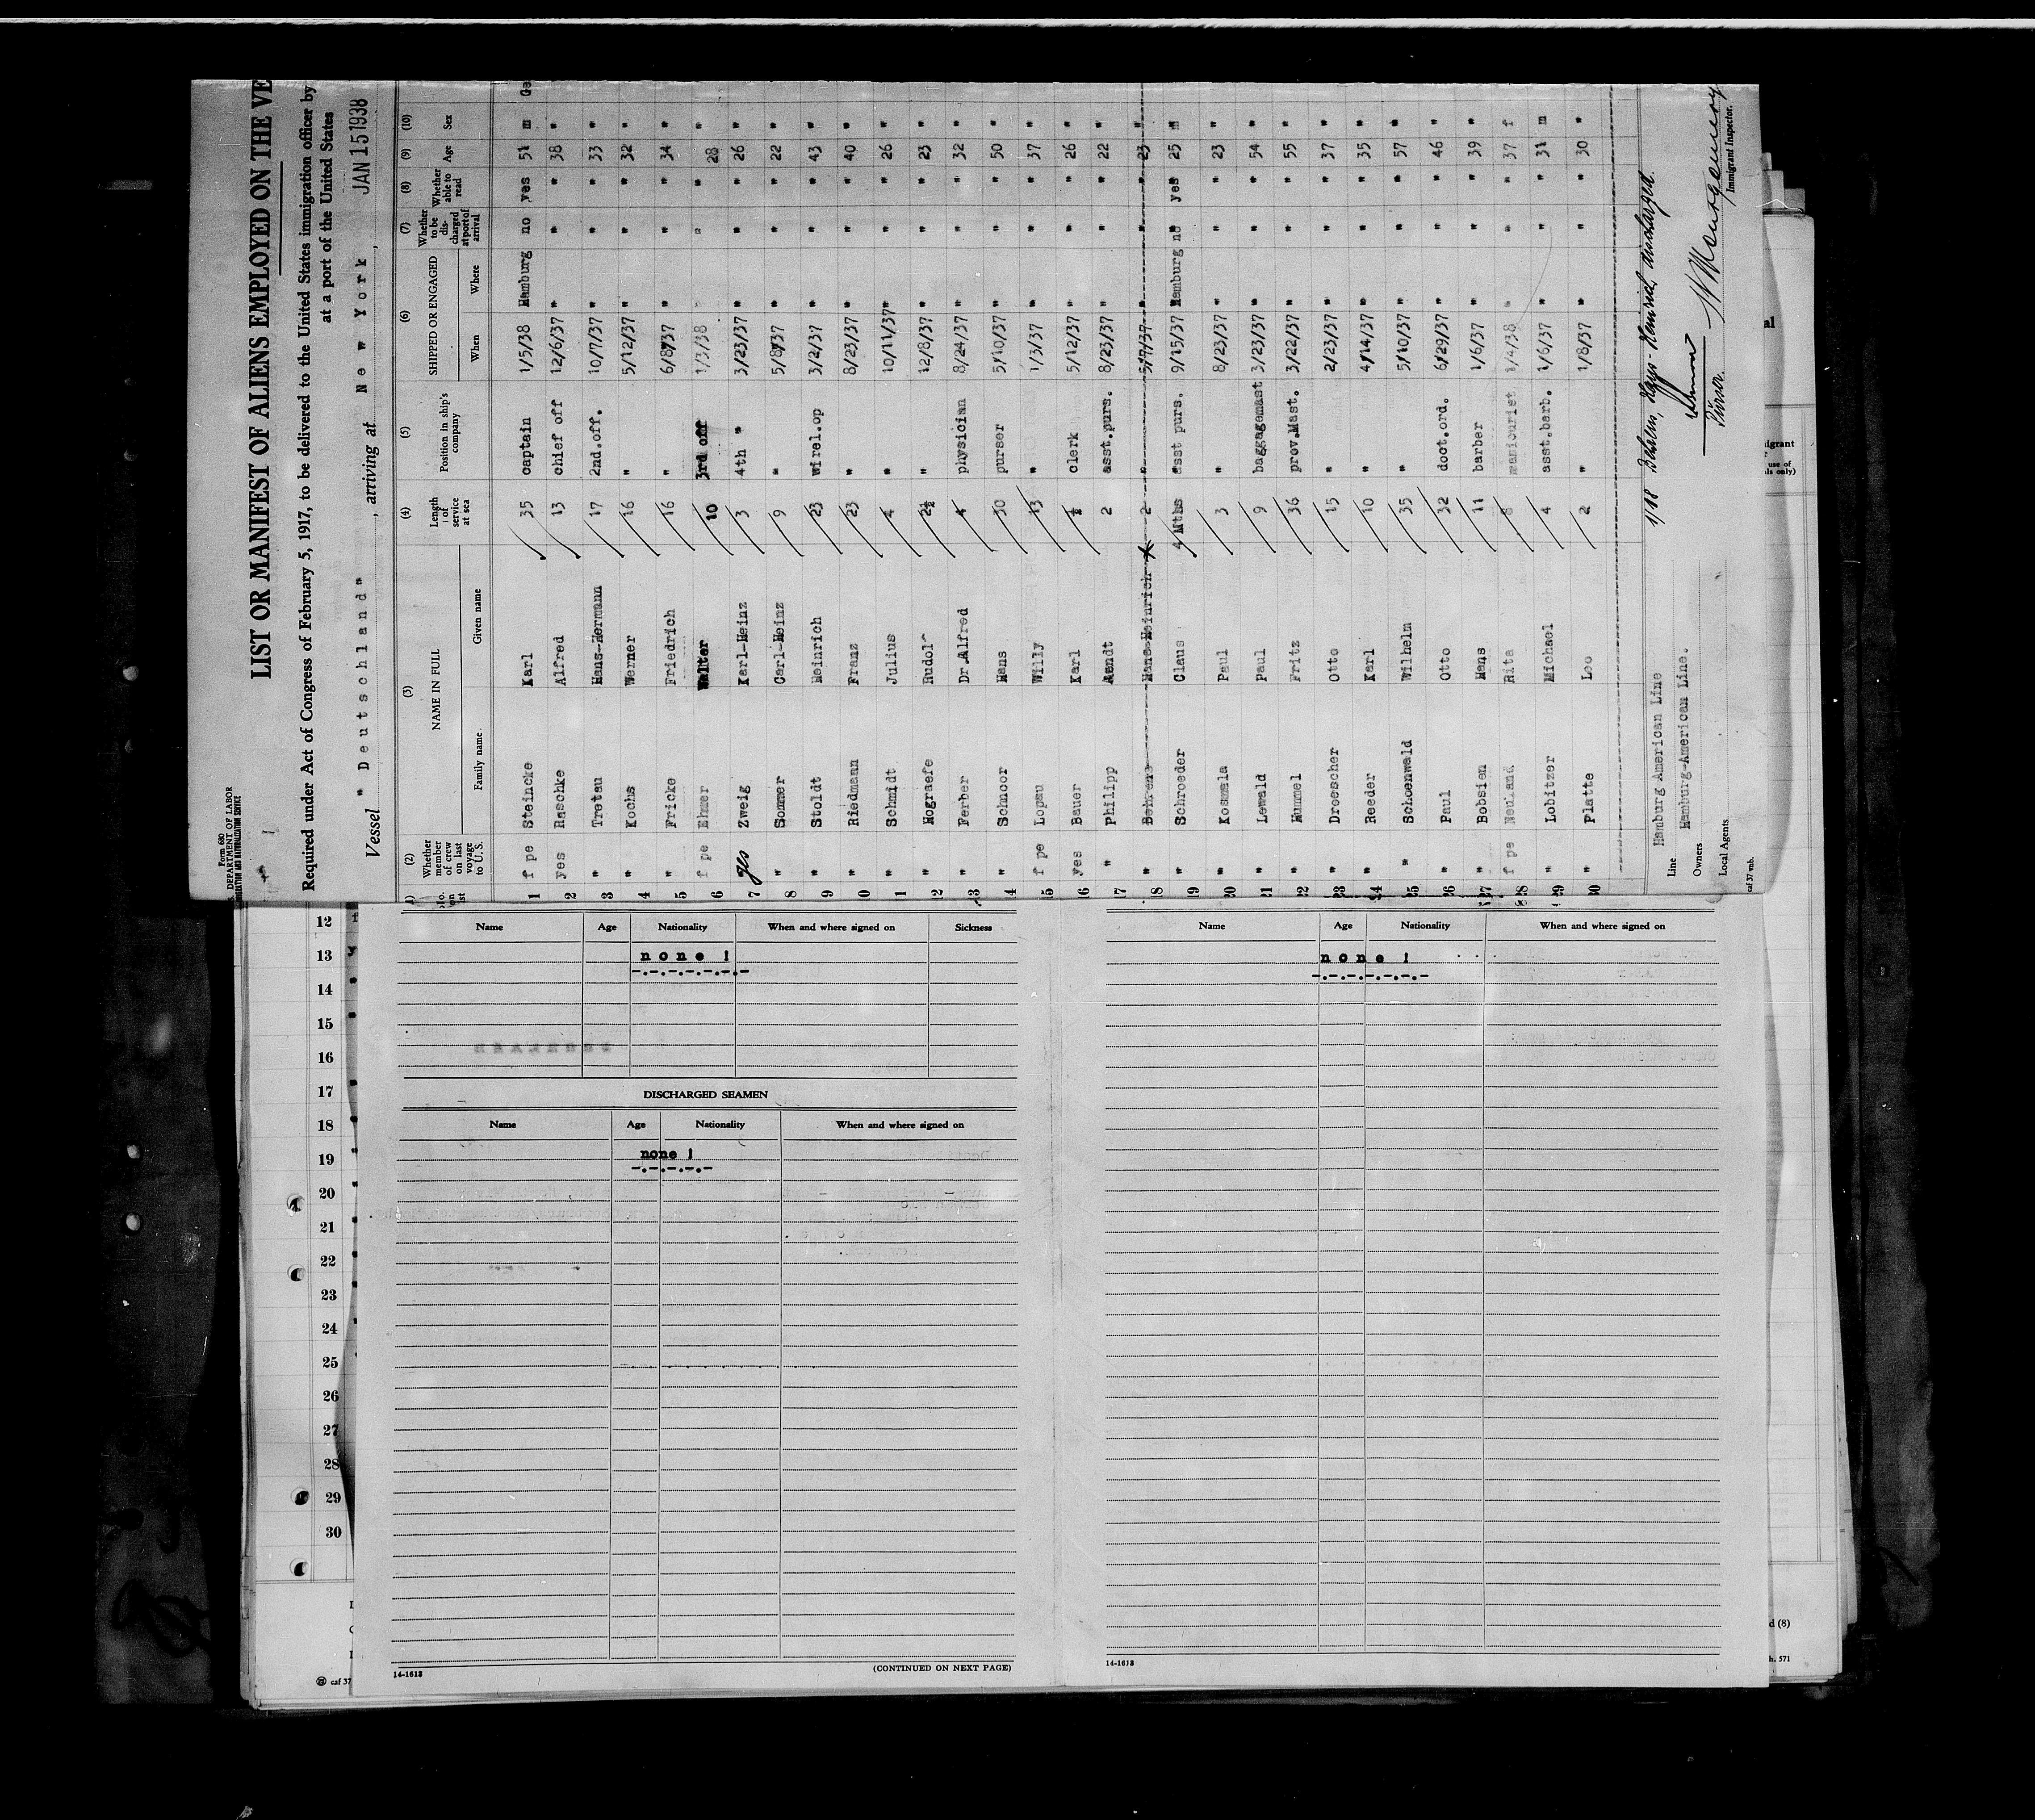 Form 680
DEPARTMENT OF LABOR
LIST OR MANIFEST OF ALIENS EMPLOYED ON THE VE
Required under Act of Congress of February 5, 1917, to be delivered to the United States immigration officer by
at a port of the United States
Vessel " Deutschland " , arriving at New York , JAN 15 1938
(2) Whether member of crew on last voyage to U.S. (3) NAME IN FULL Family name Given name (4) Length of service at sea (5) Position in ship's company (6) SHIPPED OR ENGAGED When Where (7) Whether to be discharged at port of arrival (8) Whether able to read (9) Age (10) Sex
1 f pe Steincke Karl 35 captain 1/5/38 Hamburg no yes 51 m Ge
2 yes Raschke Alfred 13 chief off 12/6/37 " " " 38 "
3 " Tretau Hans-Hermann 17 2nd.off. 10/7/37 " " " 33 "
4 " Kochs Werner 16 " 5/12/37 " " " 32 "
5 " Fricke Friedrich 16 " 6/8/37 " " " 34 "
6 f pe Ehmer Walter 10 3rd off 1/3/38 " " " 28 "
7 yes Zweig Karl-Heinz 3 4th " 3/23/37 " " " 26 "
8 " Sommer Carl-Heinz 9 " 5/8/37 " " " 22 "
9 " Stoldt Heinrich 23 wirel.op 3/2/37 " " " 43 "
10 " Riedmann Franz 23 " 8/23/37 " " " 40 "
11 " Schmidt Julius 4 " 10/11/37 " " " 26 "
12 " Hograefe Rudolf 2½ " 12/8/37 " " " 23 "
13 " Ferber Dr.Alfred 4 physician 8/24/37 " " " 32 "
14 " Schnoor Hans 30 purser 5/10/37 " " " 50 "
15 f pe Lopau Willy 13 " 1/3/37 " " " 37 "
16 yes Bauer Karl ½ clerk 5/12/37 " " " 26 "
17 " Philipp Arndt 2 asst.purs. 8/23/37 " " " 22 "
18 " Behrens Hans-Heinrich 2 " 5/7/37 " " " 23 "
19 " Schroeder Claus 4 Mths asst purs. 9/15/37 Hamburg no yes 25 m
20 " Kosmala Paul 3 " 8/23/37 " " " 23 "
21 " Lewald Paul 9 baggagemast 3/23/37 " " " 54 "
22 " Hummel Fritz 36 prov.Mast. 3/22/37 " " " 55 "
23 " Droescher Otto 15 " 2/23/37 " " " 37 "
24 " Reeder Karl 10 " 4/14/37 " " " 35 "
25 " Schoenwald Wilhelm 35 " 5/10/37 " " " 57 "
26 " Paul Otto 32 doct.ord. 6/29/37 " " " 46 "
27 " Bobsien Hans 11 barber 1/6/37 " " " 39 "
28 f pe Neuland Rita 8 manicurist 1/4/38 " " " 37 f
29 " Lobitzer Michael 4 asst.barb. 1/6/37 " " " 31 m
30 " Platte Leo 2 " 1/8/37 " " " 30 "
1/18 Behrens, Hans-Heinrich discharged.
Line Hamburg American Line
Owners Hamburg-American Line.
Local Agents
Purser.
Immigrant Inspector.
12
13
14
15
16
17
18
19
20
21
22
23
24
25
26
27
28
29
30
caf 37
Name Age Nationality When and where signed on Sickness
none !
DISCHARGED SEAMEN
Name Age Nationality When and where signed on
none !
14-1613
(CONTINUED ON NEXT PAGE)
Name Age Nationality When and where signed on
none !
14-1613
al
use of
ls only)
d (8)
h. 571